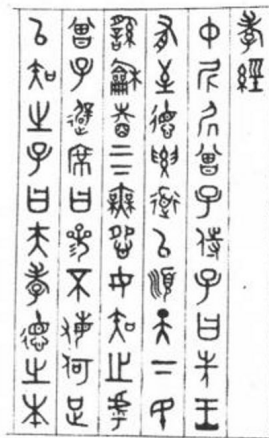 孝經
中尼凥曾子侍子曰先王
有至德要道以順天下民
龢睦上下無怨女知之乎
曾子避席曰參不敏何足
以知之子曰夫孝德之本